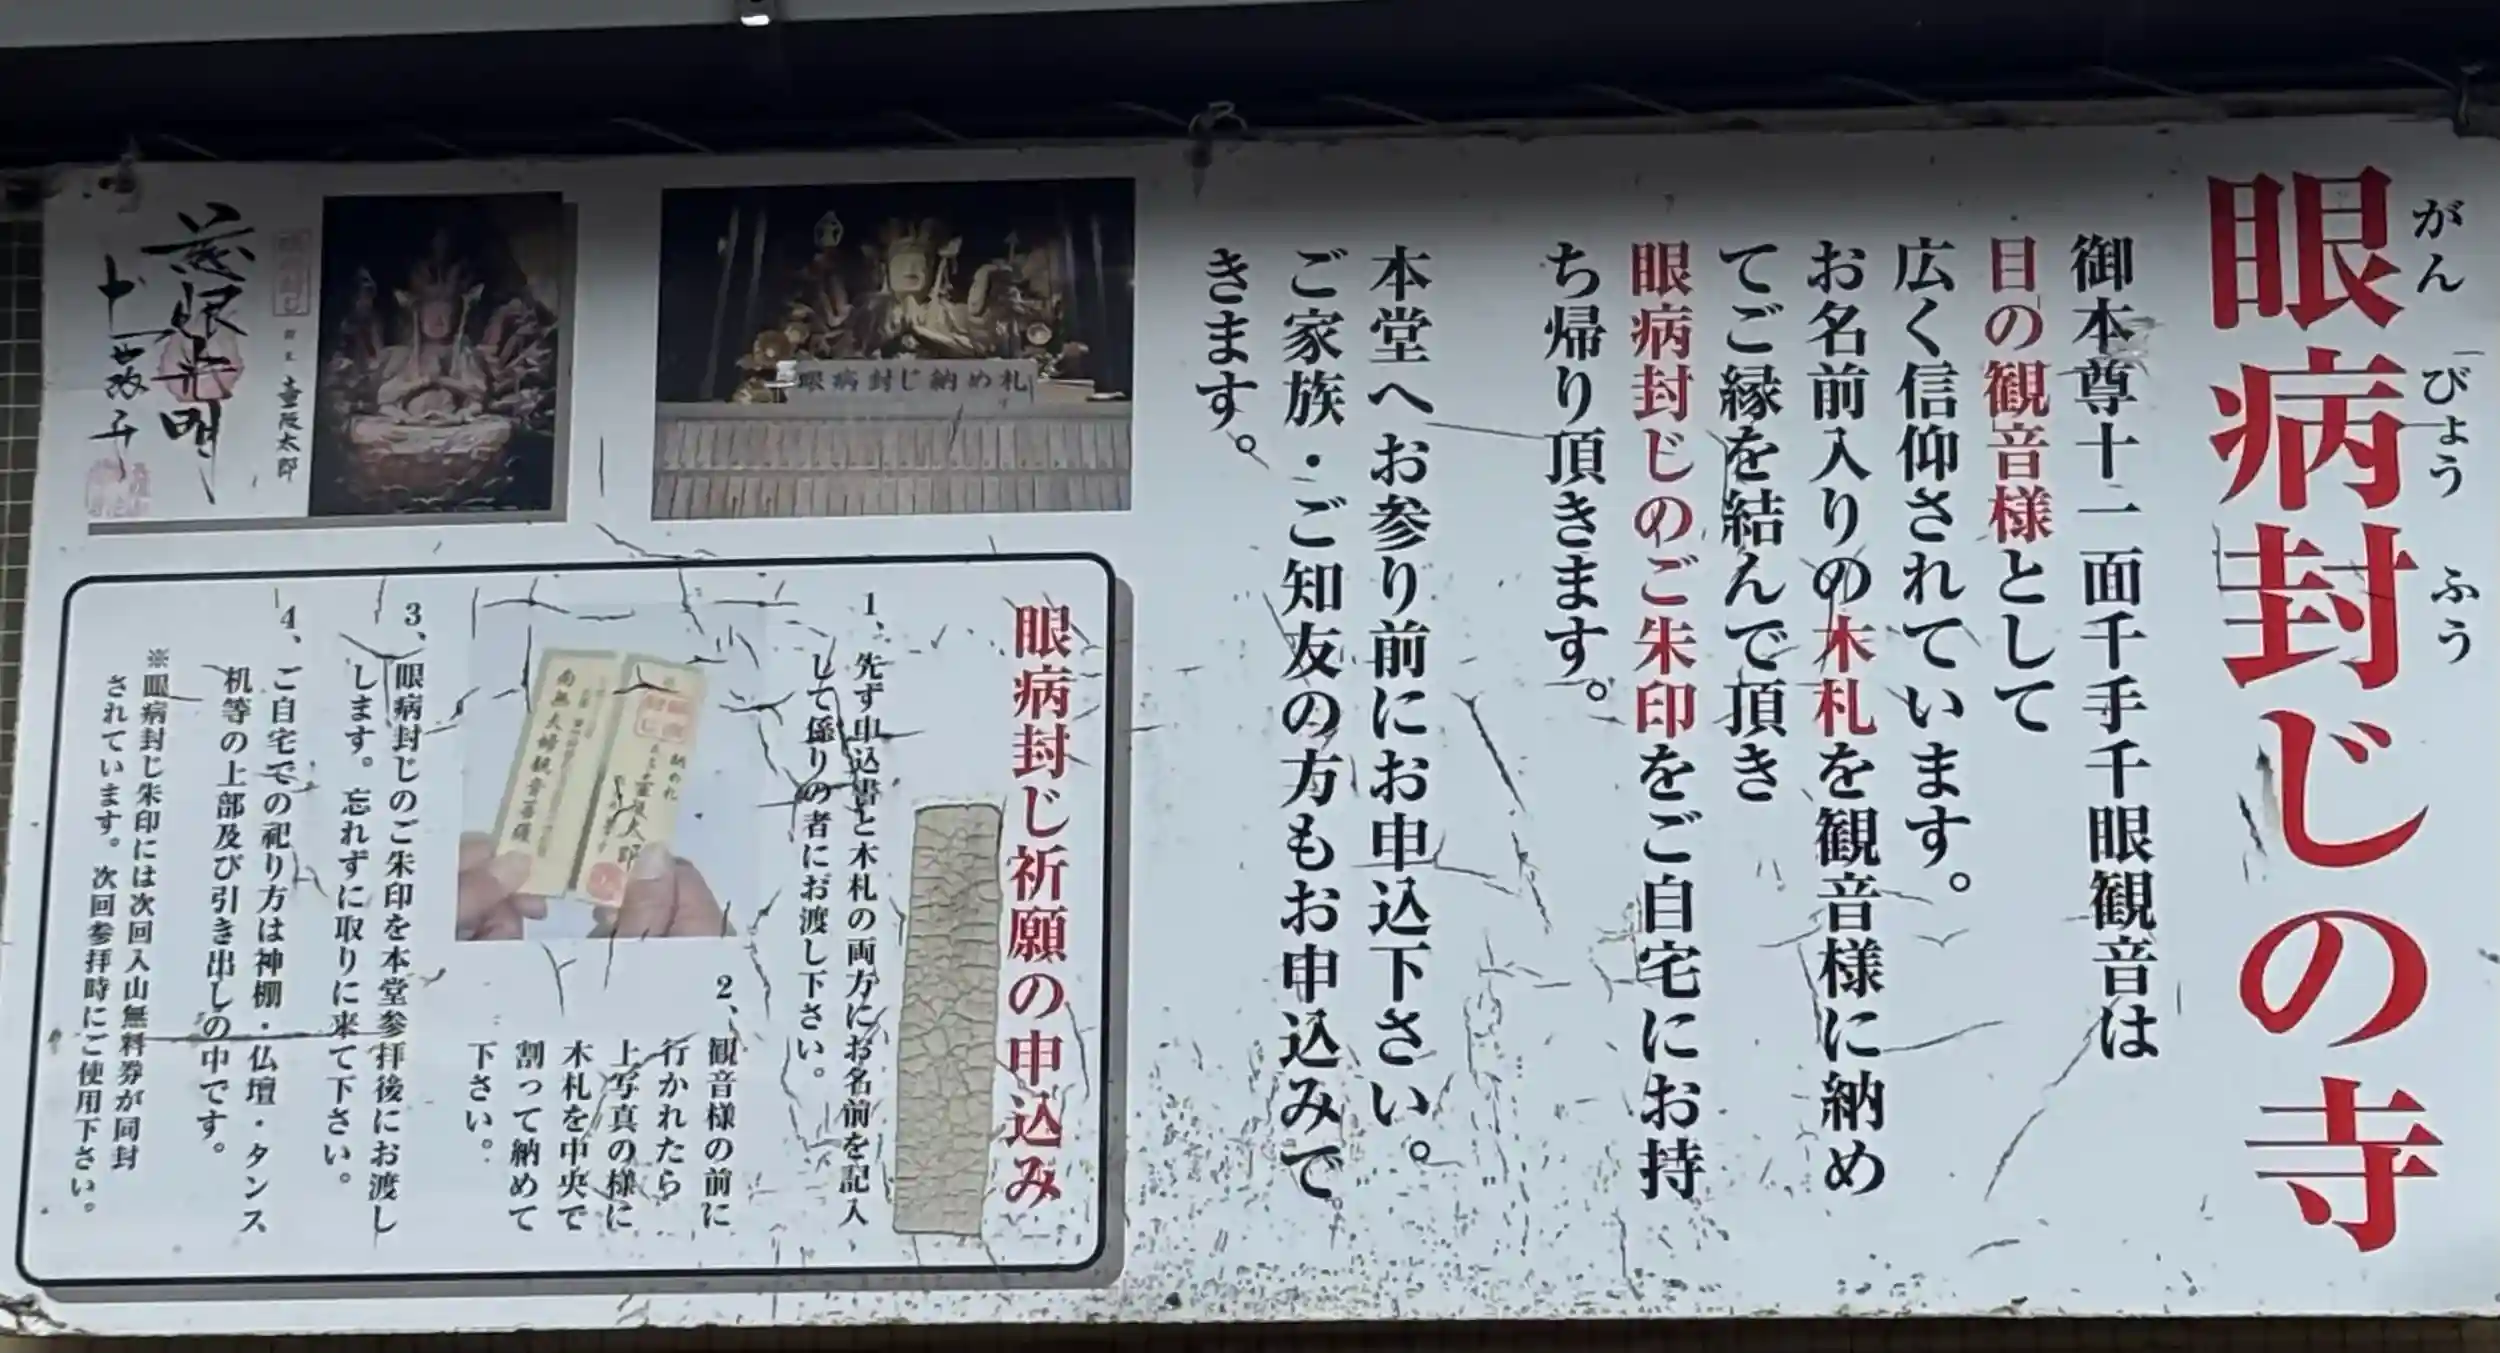 眼病封じの寺
がん びょう ふう
御本尊十一面千手千眼観音は
目の観音様として
広く信仰されています。
お名前入りの木札を観音様に納め
てご縁を結んで頂き
眼病封じのご朱印をご自宅にお持
ち帰り頂きます。
本堂へお参り前にお申込下さい。
ご家族・ご知友の方もお申込みで
きます。
眼病封じ納め札
壷阪太郎
慈眼光明
眼病封じ祈願の申込み
1、先ず申込書と木札の両方にお名前を記入
して係りの者にお渡し下さい。
納め札
南無大悲観音菩薩
2、観音様の前に
行かれたら
上写真の様に
木札を中央で
割って納めて
下さい。
3、眼病封じのご朱印を本堂参拝後にお渡し
します。忘れずに取りに来て下さい。
4、ご自宅での祀り方は神棚・仏壇・タンス
机等の上部及び引き出しの中です。
※眼病封じ朱印には次回入山無料券が同封
されています。次回参拝時にご使用下さい。